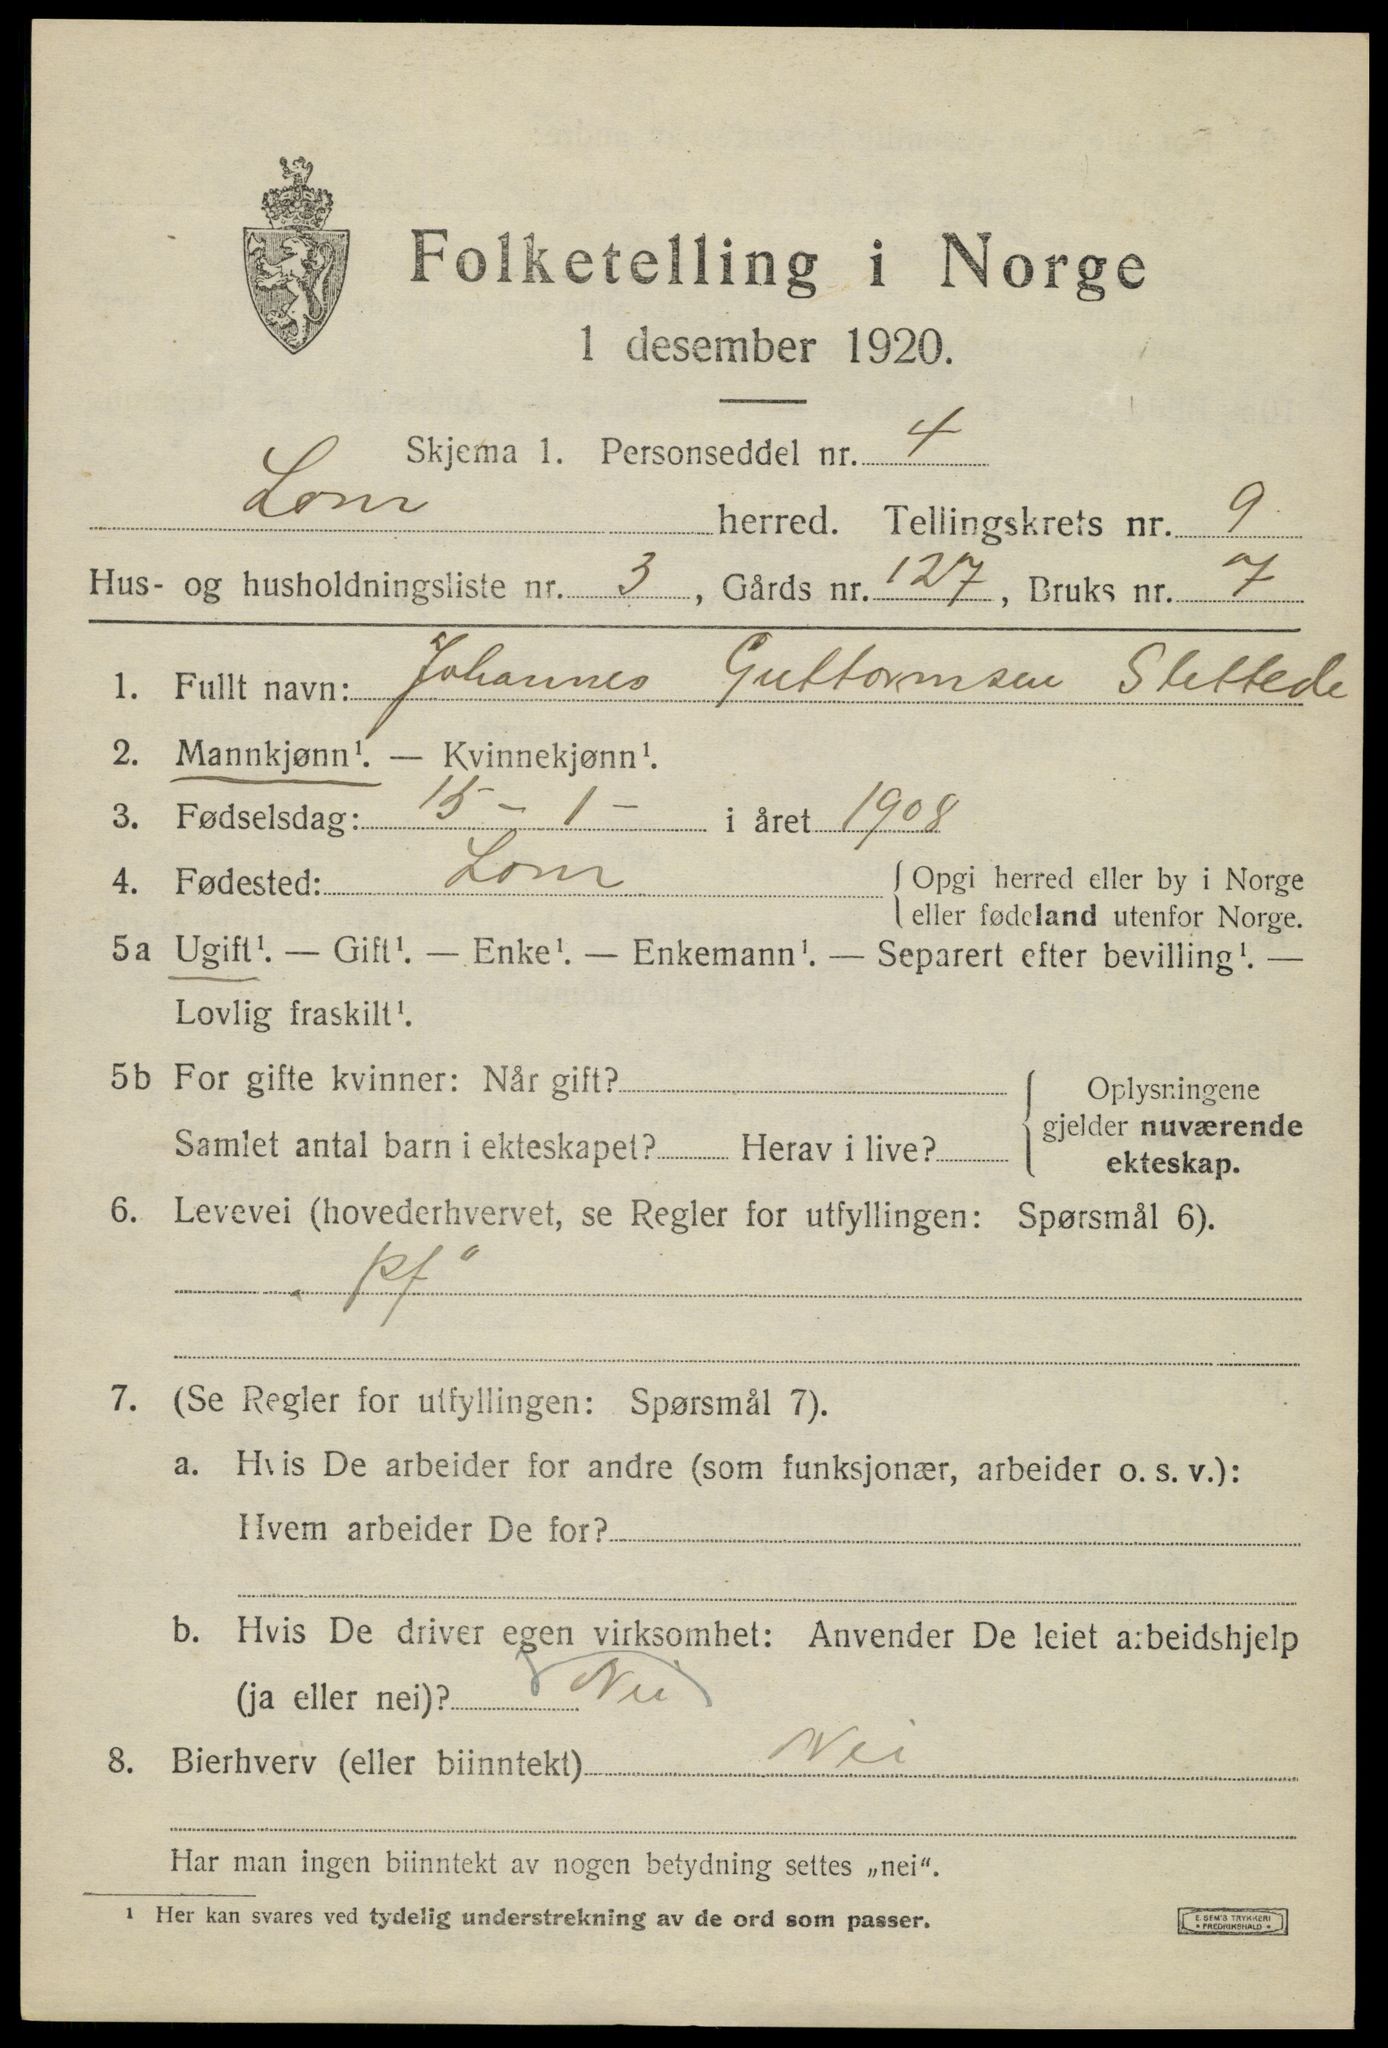 Folketelling i Norge
1 desember 1920.
Skjema 1. Personseddel nr. 4
Lom herred. Tellingskrets nr. 9
Hus- og husholdningsliste nr. 3, Gårds nr. 127, Bruks nr. 7
1. Fullt navn: Johannes Guttormsen Slettede
2. Mannkjønn¹. — Kvinnekjønn¹.
3. Fødselsdag: 15 - 1 - i året 1908
4. Fødested: Lom { Opgi herred eller by i Norge
eller fødeland utenfor Norge.
5a Ugift¹. — Gift¹. — Enke¹. — Enkemann¹. — Separert efter bevilling¹. —
Lovlig fraskilt¹.
5b For gifte kvinner: Når gift? { Oplysningene
gjelder nuværende
Samlet antal barn i ekteskapet? Herav i live?
ekteskap.
6. Levevei (hovederhvervet, se Regler for utfyllingen: Spørsmål 6).
pf
7. (Se Regler for utfyllingen: Spørsmål 7).
a. Hvis De arbeider for andre (som funksjonær, arbeider o. s. v.):
Hvem arbeider De for?
b. Hvis De driver egen virksomhet: Anvender De leiet arbeidshjelp
(ja eller nei)? Nei
8. Bierhverv (eller biinntekt) Nei
Har man ingen biinntekt av nogen betydning settes „nei“.
¹ Her kan svares ved tydelig understrekning av de ord som passer.
E. SEM'S TRYKKERI
• FREDRIKSHALD •